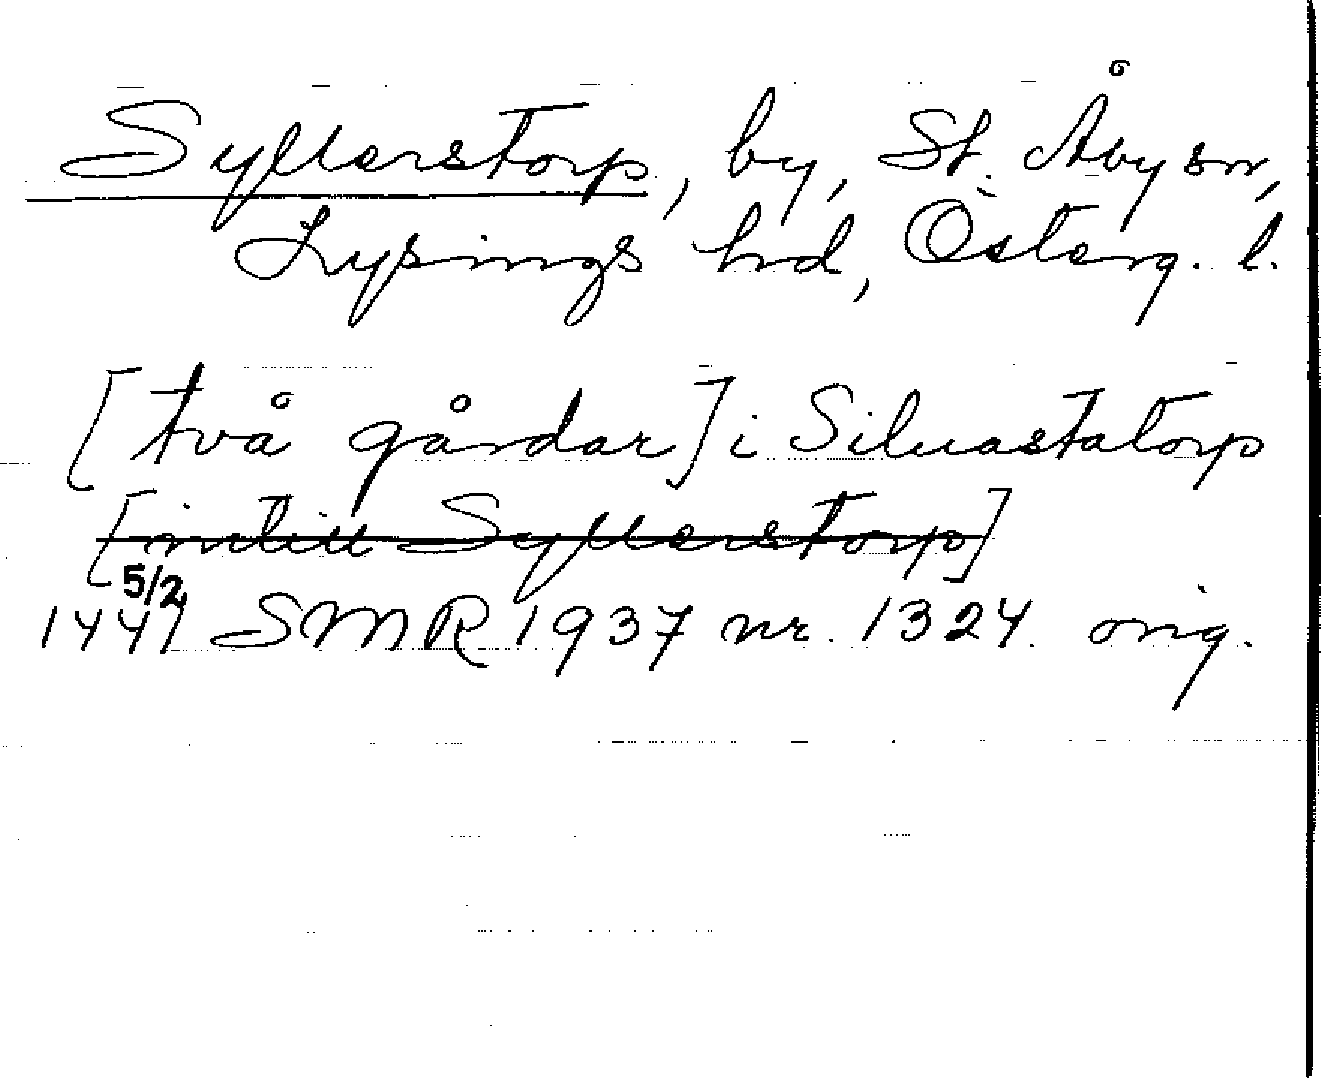 Syllerstorp, by, St. Åby sn,
Lysings hd, Österg. l.
[två gårdar] i Siluastatorp
[intill Syllerstorp]
5/2
1447 SMR 1937 nr. 1324. orig.